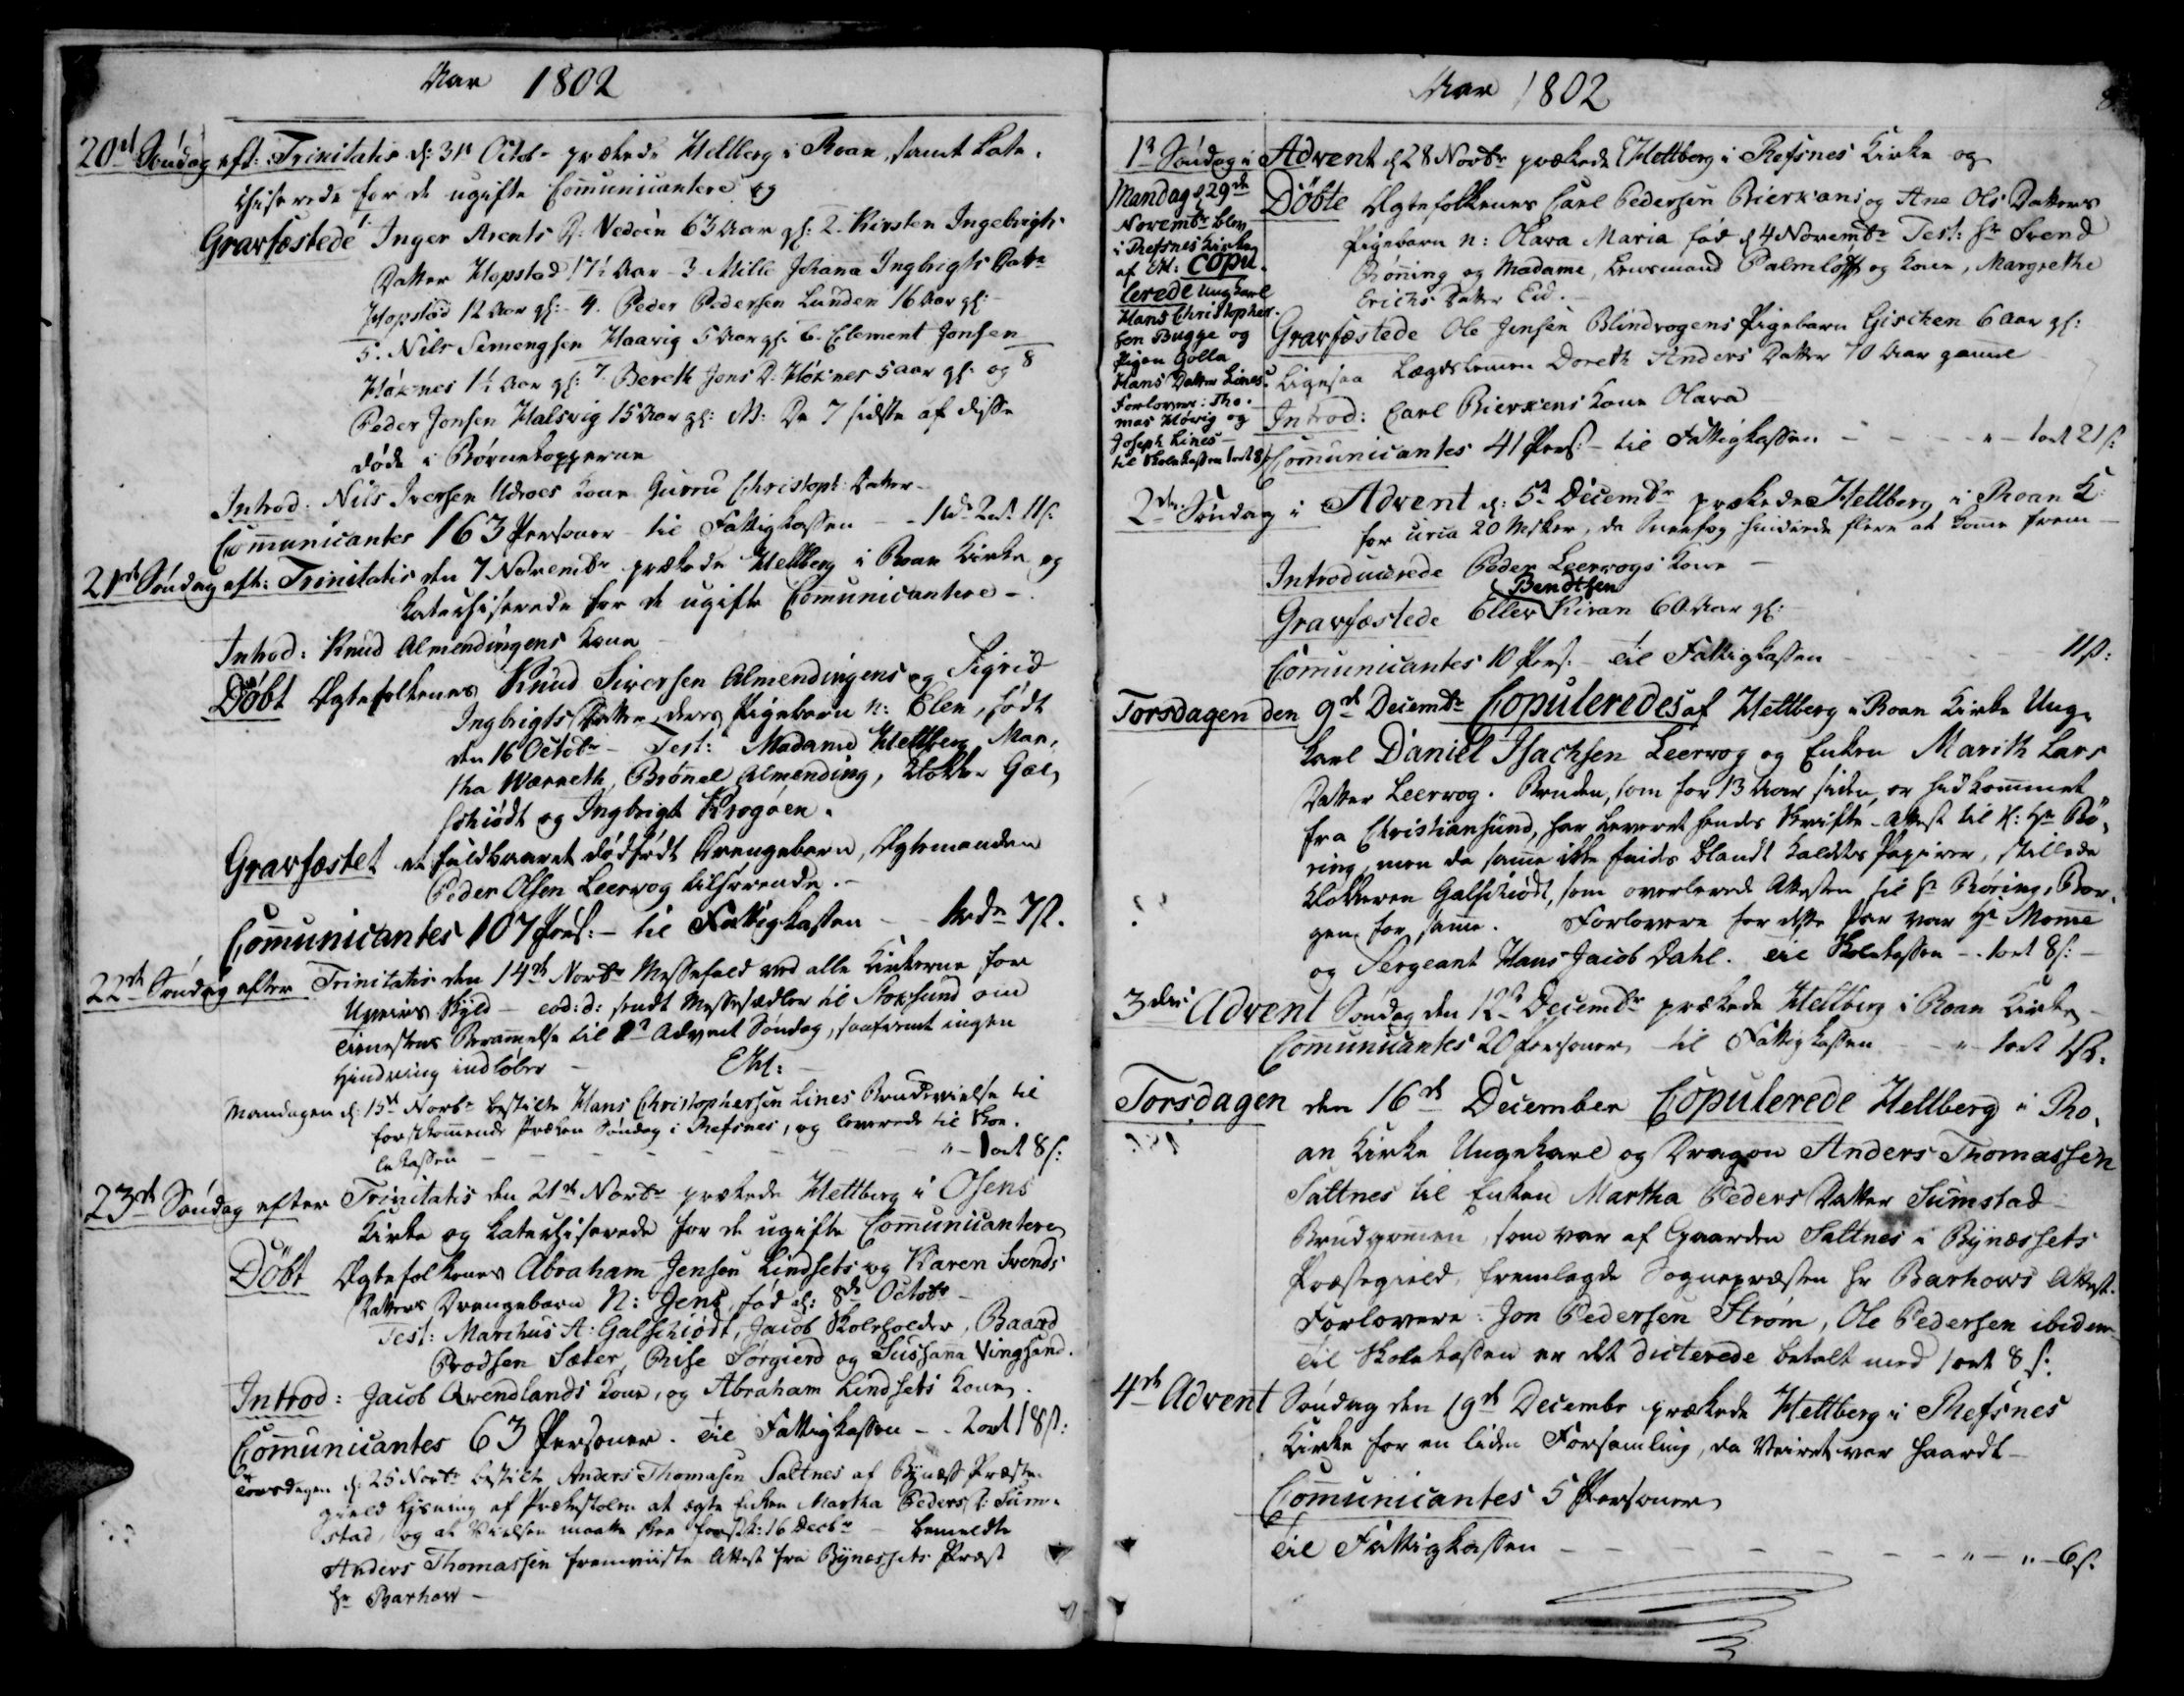 Aar 1802
20de Søndag eft: Trinitatis d: 31te Octobr prækede Hellberg i Roan, samt kate-
chiserede for de ugifte Communicantere og
Gravfæstede 1. Inger Arents D: Nedoen 63 Aar gl: 2. Kirsten Ingebrigts
Datter Hopstad 17½ Aar - 3. Mille Johana Ingbrigts Datr
Hopstad 12 Aar gl: - 4. Peder Pedersen Lunden 16 Aar gl: -
5. Nils Simensen Haarig 5 Aar gl: 6. Element Jonsen
Høknes 1½ Aar gl: 7. Bereth Jons D: Høknes 5 aar gl: og 8
Peder Jonsen Halsvig 15 Aar gl: N: De 7 sidste af disse
døde i Børnekopperne
Introd: Nils Iversen Udroes kone Gurru Christoph: Datter -
Communicantes 163 Personer - til Fattigkassen - 1 rdr 2 ort 11 s:
21de Søndag eft: Trinitatis den 7 Novembr prækede Hellberg i Roan Kirke og
katechiserede for de ugifte Communicantere -
Introd: Knud Almendingens kone
Døbt Ægtefolkenes Knud Siversen Almendingens og Sigrid
Ingbrigts Datter deres Pigebarn n: Elen, født
den 16 Octobr - Test: Madame Hellberg, Mar-
tha Wærneth, Brønel Almending, Klokker Gal-
schiødt og Ingbrigt Krogøen.
Gravfæstet et fuldbaaret dødfødt Drengebarn, Ægtemanden
Peder Olsen Leervog tilhørende. -
Communicantes 107 Pers: - til Fattigkassen - 1 rdr 7 s.
22de Søndag efter Trinitatis den 14de Novbr Messefald ved alle Kirkerne for
Uveirs Skyld - eod: d: sendt Messesædler til Stoksund om
Tienestens Berammelse til 1ste Advent Søndag, saafremt ingen
Hindring indløber - EM:
Mandagen d: 15de Novbr bestilte Hans Christophersen Lines Brudevielse til
førstkommende Præken Søndag i Refsnes, og leverede til Sko-
lekassen - - - - - - - " - 1 ort 8 s:
23de Søndag efter Trinitatis den 21de Novbr prækede Hellberg i Osens
Kirke og katechiserede for de ugifte Communicantere
Døbt Ægtefolkenes Abraham Jensen Lindsets og Karen Svends
Datters Drengebarn N: Jens, fød d: 8de Octobr -
Test: Marchus A: Galschiødt, Jacob Skoleholder, Baard
Brodsen Sæter, Else Sørgierd og Sussana Vingsand.
Introd: Jacob Arendlands kone, og Abraham Lindsets kone.
Communicantes 63 Personer. Til Fattigkassen - - 2 ort 18 s:
Torsdagen d: 25 Novbr bestilte Anders Thomasen Saltnes af Bynæss Præste-
gield Lysning af Prækestolen at ægte Enken Martha Peders D: Sum-
stad, og at Vielsen maatte skee førstk: 16 Decbr - bemeldte
Anders Thomassen fremviiste Attest fra Bynessets Præst
Hr Barhow -
Aar 1802
8
1ste Søndag i Advent d 28 Novbr prækede Hellberg i Refsnes Kirke og
Døbte Ægtefolkenes Carl Pedersen Bierkans og Ane Ols Datters
Pigebarn n: Olava Maria fød d 4 Novembr Test: Hr Svend
Rønning og Madame, Lensmand Palmløff og kone, Margrethe
Erichs Datter Eid. -
Gravfæstede Ole Jensen Blindvogens Pigebarn Gischen 6 aar gl:
Ligesaa Lægdslemmen Doreth Anders Datter 70 Aar gamel
Introd: Carl Bierkens kone Olava
Communicantes 41 Pers: - til Fattigkassen - - - - " - 1 ort 21 s:
Mandag d 29de
Novembr blev
i Refsnes Kirke
af EM: Copu-
lerede Ungkarl
Hans Christopher-
sen Bugge og
Pigen Golla
Hans Datter Lines
Forlovere: Tho-
mas Høvig og
Joseph Lines -
til Skolekassen 1 ort 8 s
2den Søndag i Advent d: 5te Decembr prækede Hellberg i Roan K:
for circa 20 Msker, da Sneefog hindrede flere at komme frem -
Introducerede Peder Leervogs kone -
Gravfæstede Eller Bendtsen Kiran 60 Aar gl: -
Communicantes 10 Pers: - til Fattigkassen - - - 11 s:
Torsdagen den 9de Decembr Copuleredes af Hellberg i Roan Kirke Ung-
karl Daniel Isachsen Leervog og Enken Marith Lars
Datter Leervog. Bruden, som for 13 Aar siden er hidkommet
fra Christiansund, har leveret hendes Skrifte-Attest til H: Hr Rø-
ring, men da samme ikke findes blandt Kaldets Papirer, stillede
Klokkeren Galschiødt, som overlevede Attesten til Hr Røring, Bor-
gen for samme. Forlovere for dette Par var Hr Momme
og Sergeant Hans Jacob Dahl. Til Skolekassen - 1 ort 8 s: -
3die Advent Søndag den 12te Decembr prækede Hellberg i Roan Kirke -
Communicantes 20 Personer til Fattigkassen - " 1 ort 1 s:
Torsdagen den 16de December Copulerede Hellberg i Ro-
an Kirke Ungekarl og Dragon Anders Thomassen
Saltnes til Enken Martha Peders Datter Sumstad -
Brudgomen, som var af Gaarden Saltnes i Bynæssets
Præstegield, fremlagde Sognepræsten Hr Barhows Attest.
Forlovere: Jon Pedersen Strøm, Ole Pedersen ibidem
Til Skolekassen er det dicterede betalt med 1 ort 8 s:
4de Advent Søndag den 19de Decembr prækede Hellberg i Refsnes
Kirke for en liden Forsamling, da Veiret var haardt -
Communicantes 5 Personer
Til Fattigkassen - - - - - - " - " - 6 s.